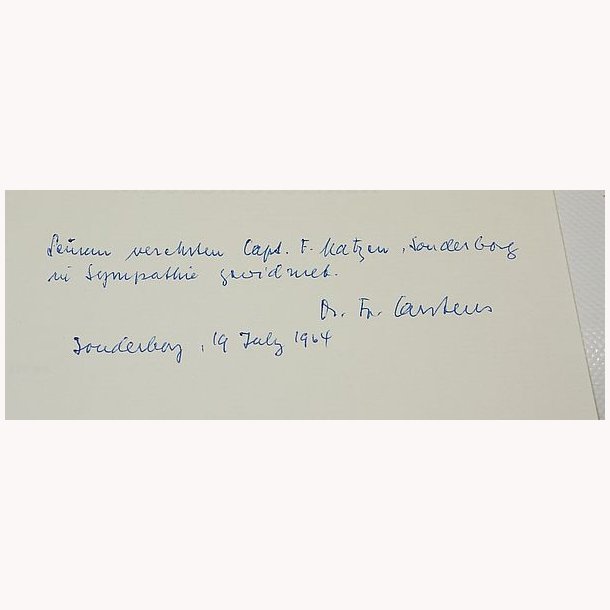 Seinem verehrten Capt. F. Matzen, Sonderborg
in Sympathie gewidmet.
Dr. Fr. Carstens
Sonderborg, 19 July 1964